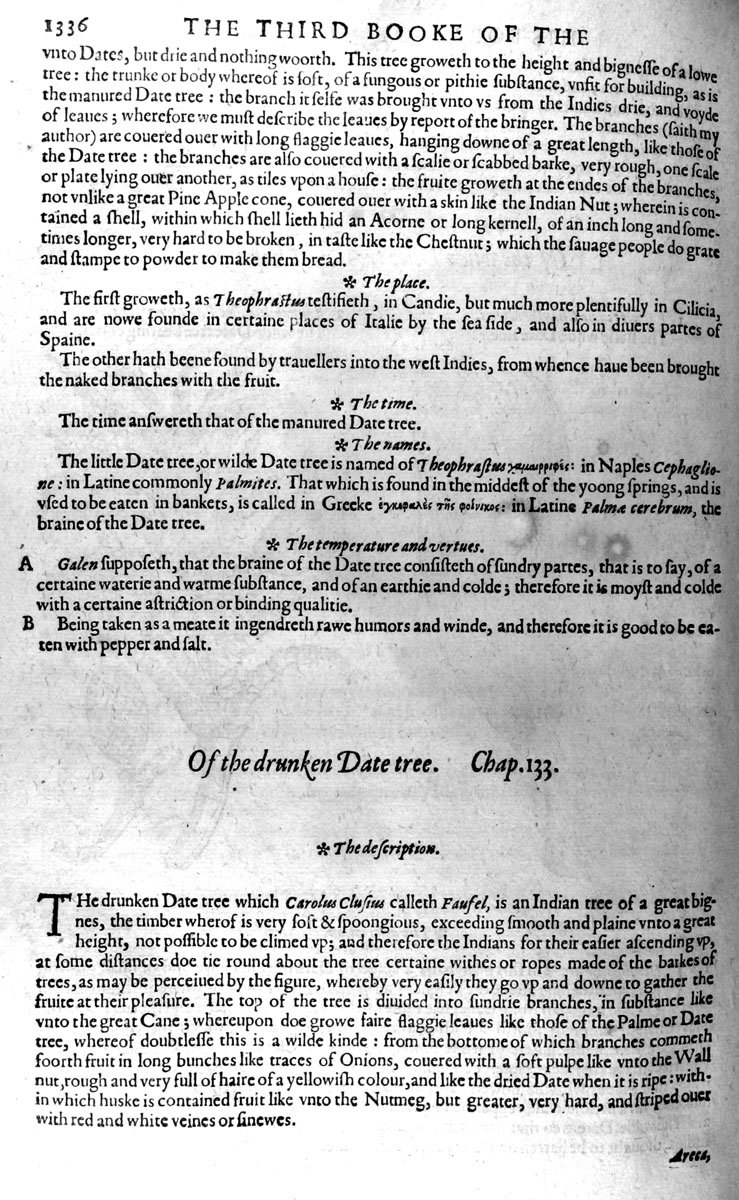 1336 THE THIRD BOOKE OF THE
vnto Dates, but drie and nothing woorth. This tree groweth to the height and bignesse of a lowe
tree: the trunke or body whereof is soft, of a fungous or pithie substance, vnfit for building, as is
the manured Date tree: the branch it selfe was brought vnto vs from the Indies drie, and voyde
of leaues; wherefore we must describe the leaues by report of the bringer. The branches (saith my
author) are couered ouer with long flaggie leaues, hanging downe of a great length, like those of
the Date tree: the branches are also couered with a scalie or scabbed barke, very rough, one scale
or plate lying ouer another, as tiles vpon a house: the fruite groweth at the endes of the branches,
not vnlike a great Pine Apple cone, couered ouer with a skin like the Indian Nut; wherein is con-
tained a shell, within which shell lieth hid an Acorne or long kernell, of an inch long and some-
times longer, very hard to be broken, in taste like the Chestnut; which the sauage people do grate
and stampe to powder to make them bread.
✻ The place.
The first groweth, as Theophrastus testifieth, in Candie, but much more plentifully in Cilicia,
and are nowe founde in certaine places of Italie by the sea side, and also in diuers partes of
Spaine.
The other hath beene found by trauellers into the west Indies, from whence haue been brought
the naked branches with the fruit.
✻ The time.
The time answereth that of the manured Date tree.
✻ The names.
The little Date tree, or wilde Date tree is named of Theophrastus χαμαιρριφὲς: in Naples Cephaglio-
ne: in Latine commonly Palmites. That which is found in the middest of the yoong springs, and is
vsed to be eaten in bankets, is called in Greeke ἐγκεφαλὲς τῆς φοίνικος: in Latine Palmæ cerebrum, the
braine of the Date tree.
✻ The temperature and vertues.
A Galen supposeth, that the braine of the Date tree consisteth of sundry partes, that is to say, of a
certaine waterie and warme substance, and of an earthie and colde; therefore it is moyst and colde
with a certaine astriction or binding qualitie.
B Being taken as a meate it ingendreth rawe humors and winde, and therefore it is good to be ea-
ten with pepper and salt.
Of the drunken Date tree. Chap. 133.
✻ The description.
THe drunken Date tree which Carolus Clusius calleth Faufel, is an Indian tree of a great big-
nes, the timber wherof is very soft & spoongious, exceeding smooth and plaine vnto a great
height, not possible to be climed vp; and therefore the Indians for their easier ascending vp,
at some distances doe tie round about the tree certaine withes or ropes made of the barkes of
trees, as may be perceiued by the figure, whereby very easily they go vp and downe to gather the
fruite at their pleasure. The top of the tree is diuided into sundrie branches, in substance like
vnto the great Cane; whereupon doe growe faire flaggie leaues like those of the Palme or Date
tree, whereof doubtlesse this is a wilde kinde: from the bottome of which branches commeth
foorth fruit in long bunches like traces of Onions, couered with a soft pulpe like vnto the Wall
nut, rough and very full of haire of a yellowish colour, and like the dried Date when it is ripe: with-
in which huske is contained fruit like vnto the Nutmeg, but greater, very hard, and striped ouer
with red and white veines or sinewes.
Areca,